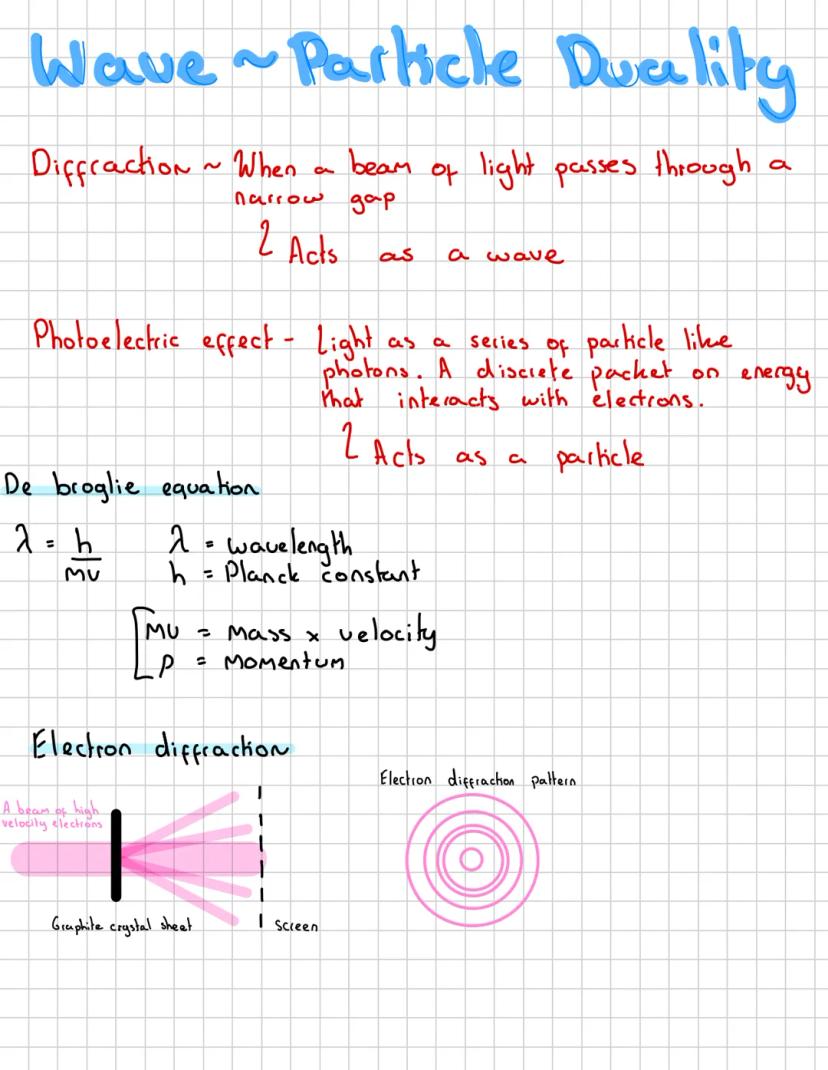 Wave ~ Particle Duality
Diffraction ~ When a beam of light passes through a
narrow gap
Acts as a wave
Photoelectric effect - Light as a series of particle like
photons. A discrete packet on energy
that interacts with electrons.
Acts as a particle
De broglie equation
λ = h/mv
λ = wavelength
h = Planck constant
mv = mass x velocity
p = momentum
Electron diffraction
Electron diffraction pattern
A beam of high
velocity electrons
Graphite crystal sheet
screen